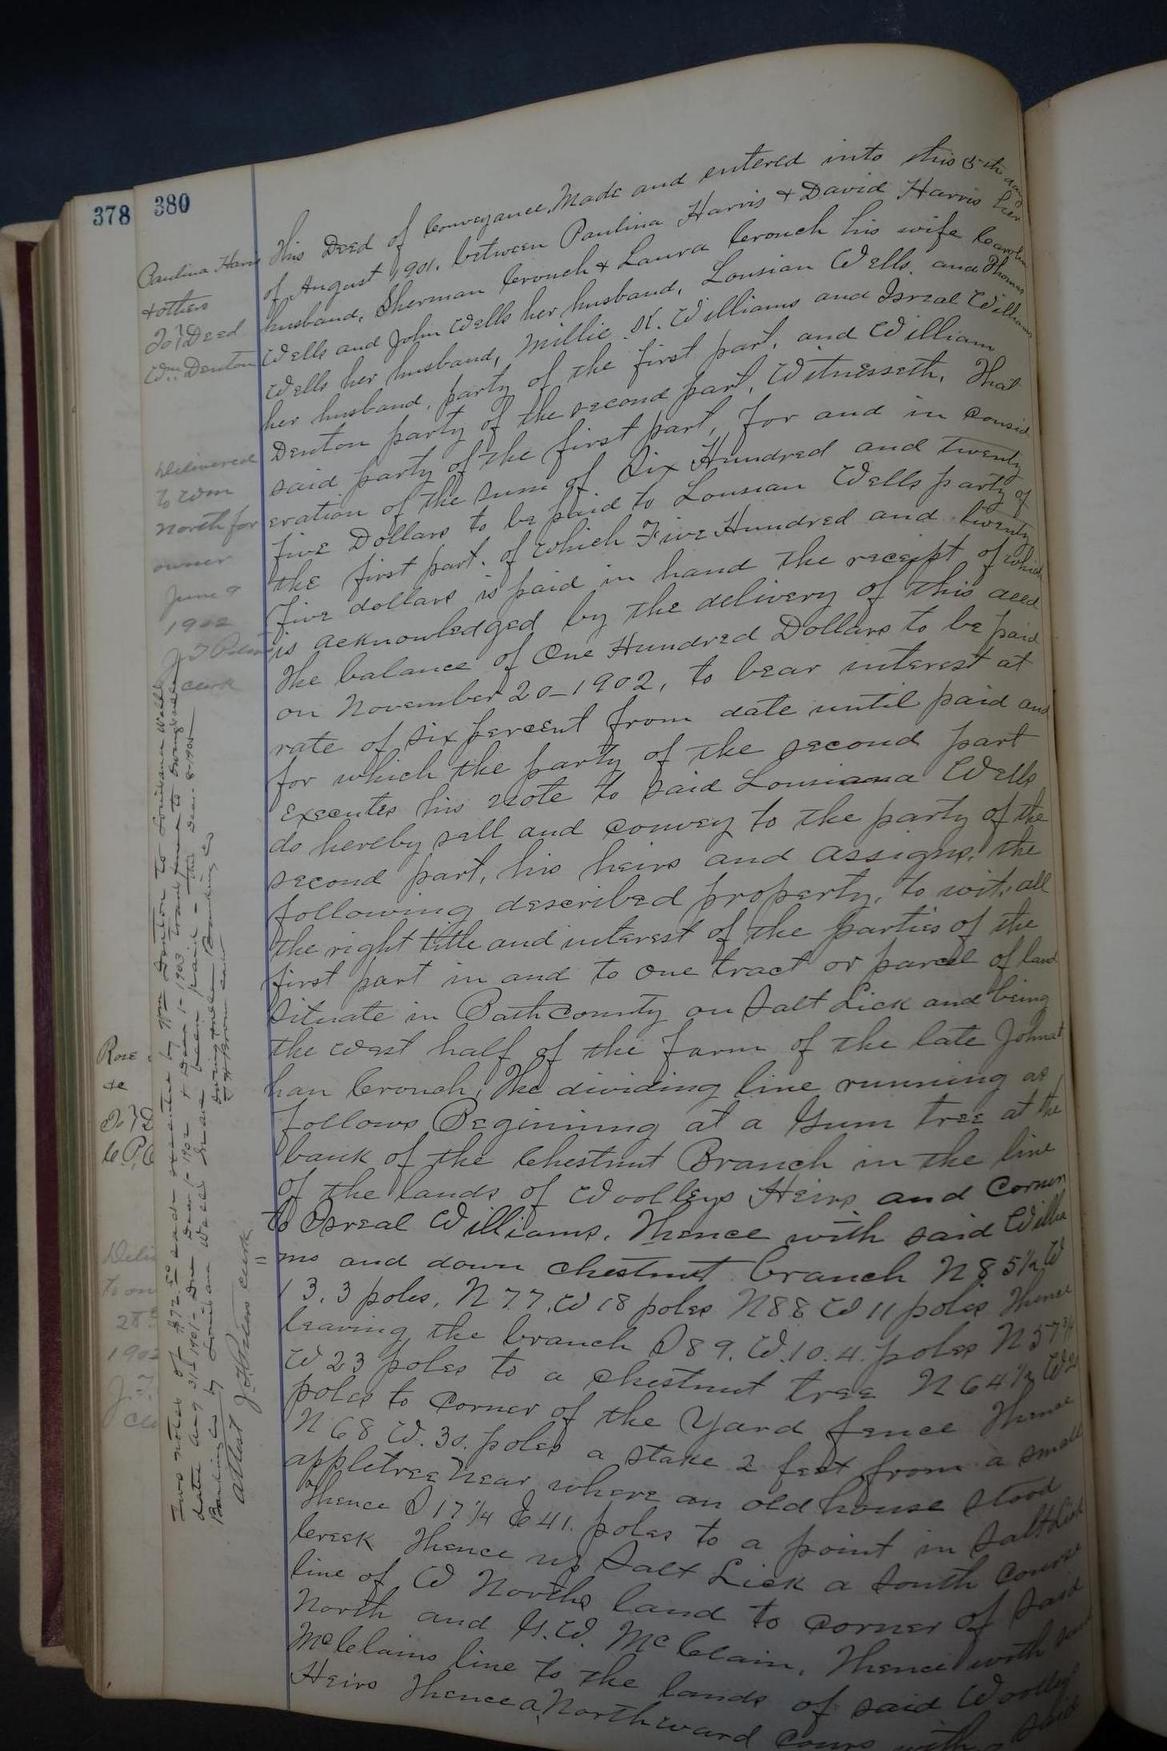 378 380
Paulina Harris
& others
To } Deed
Wm. Denton
Delivered
to Wm
North for
owner
June 9
1902
clerk
This Deed of Conveyance, Made and entered into this 5th day
of August 1901, between Paulina Harris & David Harris her
husband, Sherman Crouch & Laura Crouch his wife
Wells and John Wells her husband, Lousian Wells, and Thomas
Wells her husband, Millie K. Williams and Isreal Williams
her husband, party of the first part, and William
Denton party of the second part, Witnesseth, That
said party of the first part, for and in consid
eration of the sum of Six Hundred and twenty
five Dollars to be paid to Lousian Wells party of
the first part. of which Five Hundred and twenty
five dollars is paid in hand the receipt of which
is acknowledged by the delivery of this deed
The balance of One Hundred Dollars to be paid
on November 20-1902, to bear interest at
rate of six percent from date until paid and
for which the party of the second part
executes his note to said Lousiana Wells
do hereby sell and convey to the party of the
second part, his heirs and assigns, the
following described property, to wit, all
the right title and interest of the parties of the
first part in and to one tract or parcel of land
situate in Bath County on Salt Lick and being
the west half of the farm of the late Johnat
han Crouch, The dividing line running as
follows Beginning at a Gum tree at the
bank of the Chestnut Branch in the line
of the lands of Woolleys Heirs and Corner
to Isreal Williams, Thence with said Willia
ms and down chestnut branch N 85½ W
13.3 poles, N 77, W 18 poles N 88 W 11 poles, Thence
leaving the branch S 89. W. 10.4. poles N 57¾
W 23 poles to a chestnut tree N 64½ W
poles to corner of the Yard fence Thence
N 68 W. 30. poles a stake 2 feet from a small
appletree near where an old house stood
Thence S 17¼ E 41. poles to a point in Salt Lick
Creek Thence up Salt Lick a South Course
line of W Norths land to corner of said
North and G. W. McClain, Thence with said
McClains line to the lands of said Woolley
Heirs Thence a Northward Cours with said